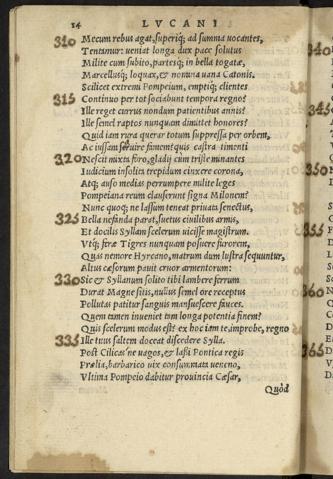 14 LVCANI
310 Mecum rebus agat, superiq; ad summa uocantes,
Tentamur: ueniat longa dux pace solutus
Milite cum subito, partesq; in bella togatæ,
Marcellusq; loquax, & nomina uana Catonis.
Scilicet extremi Pompeium, emptiq; clientes
315 Continuo per tot sociabunt tempora regno?
Ille reget currus nondum patientibus annis?
Ille semel raptos nunquam dimittet honores?
Quid iam rura querar totum suppressa per orbem,
Ac iussam seruire famem? quis castra timenti
320 Nescit mixta foro, gladij cum triste minantes
Iudicium insolita trepidum cinxere corona,
Atq; auso medias perrumpere milite leges
Pompeiana reum clauserunt signa Milonem?
Nunc quoq; ne lassum teneat priuata senectus,
325 Bella nefanda parat, suetus ciuilibus armis,
Et docilis Syllam scelerum uicisse magistrum.
Vtq; feræ Tigres nunquam posuere furorem,
Quas nemore Hyrcano, matrum dum lustra sequuntur,
Altus cæsorum pauit cruor armentorum:
330 Sic & Syllanum solito tibi lambere ferrum
Durat Magne sitis, nullus semel ore receptus
Pollutas patitur sanguis mansuescere fauces.
Quem tamen inueniet tam longa potentia finem?
Quis scelerum modus est? ex hoc iam te, improbe, regno
335 Ille tuus saltem doceat discedere Sylla.
Post Cilicas ne uagos, & lassi Pontica regis
Prælia, barbarico uix consummata ueneno,
Vltima Pompeio dabitur prouincia Cæsar,
Quòd
340
345
355
360
365